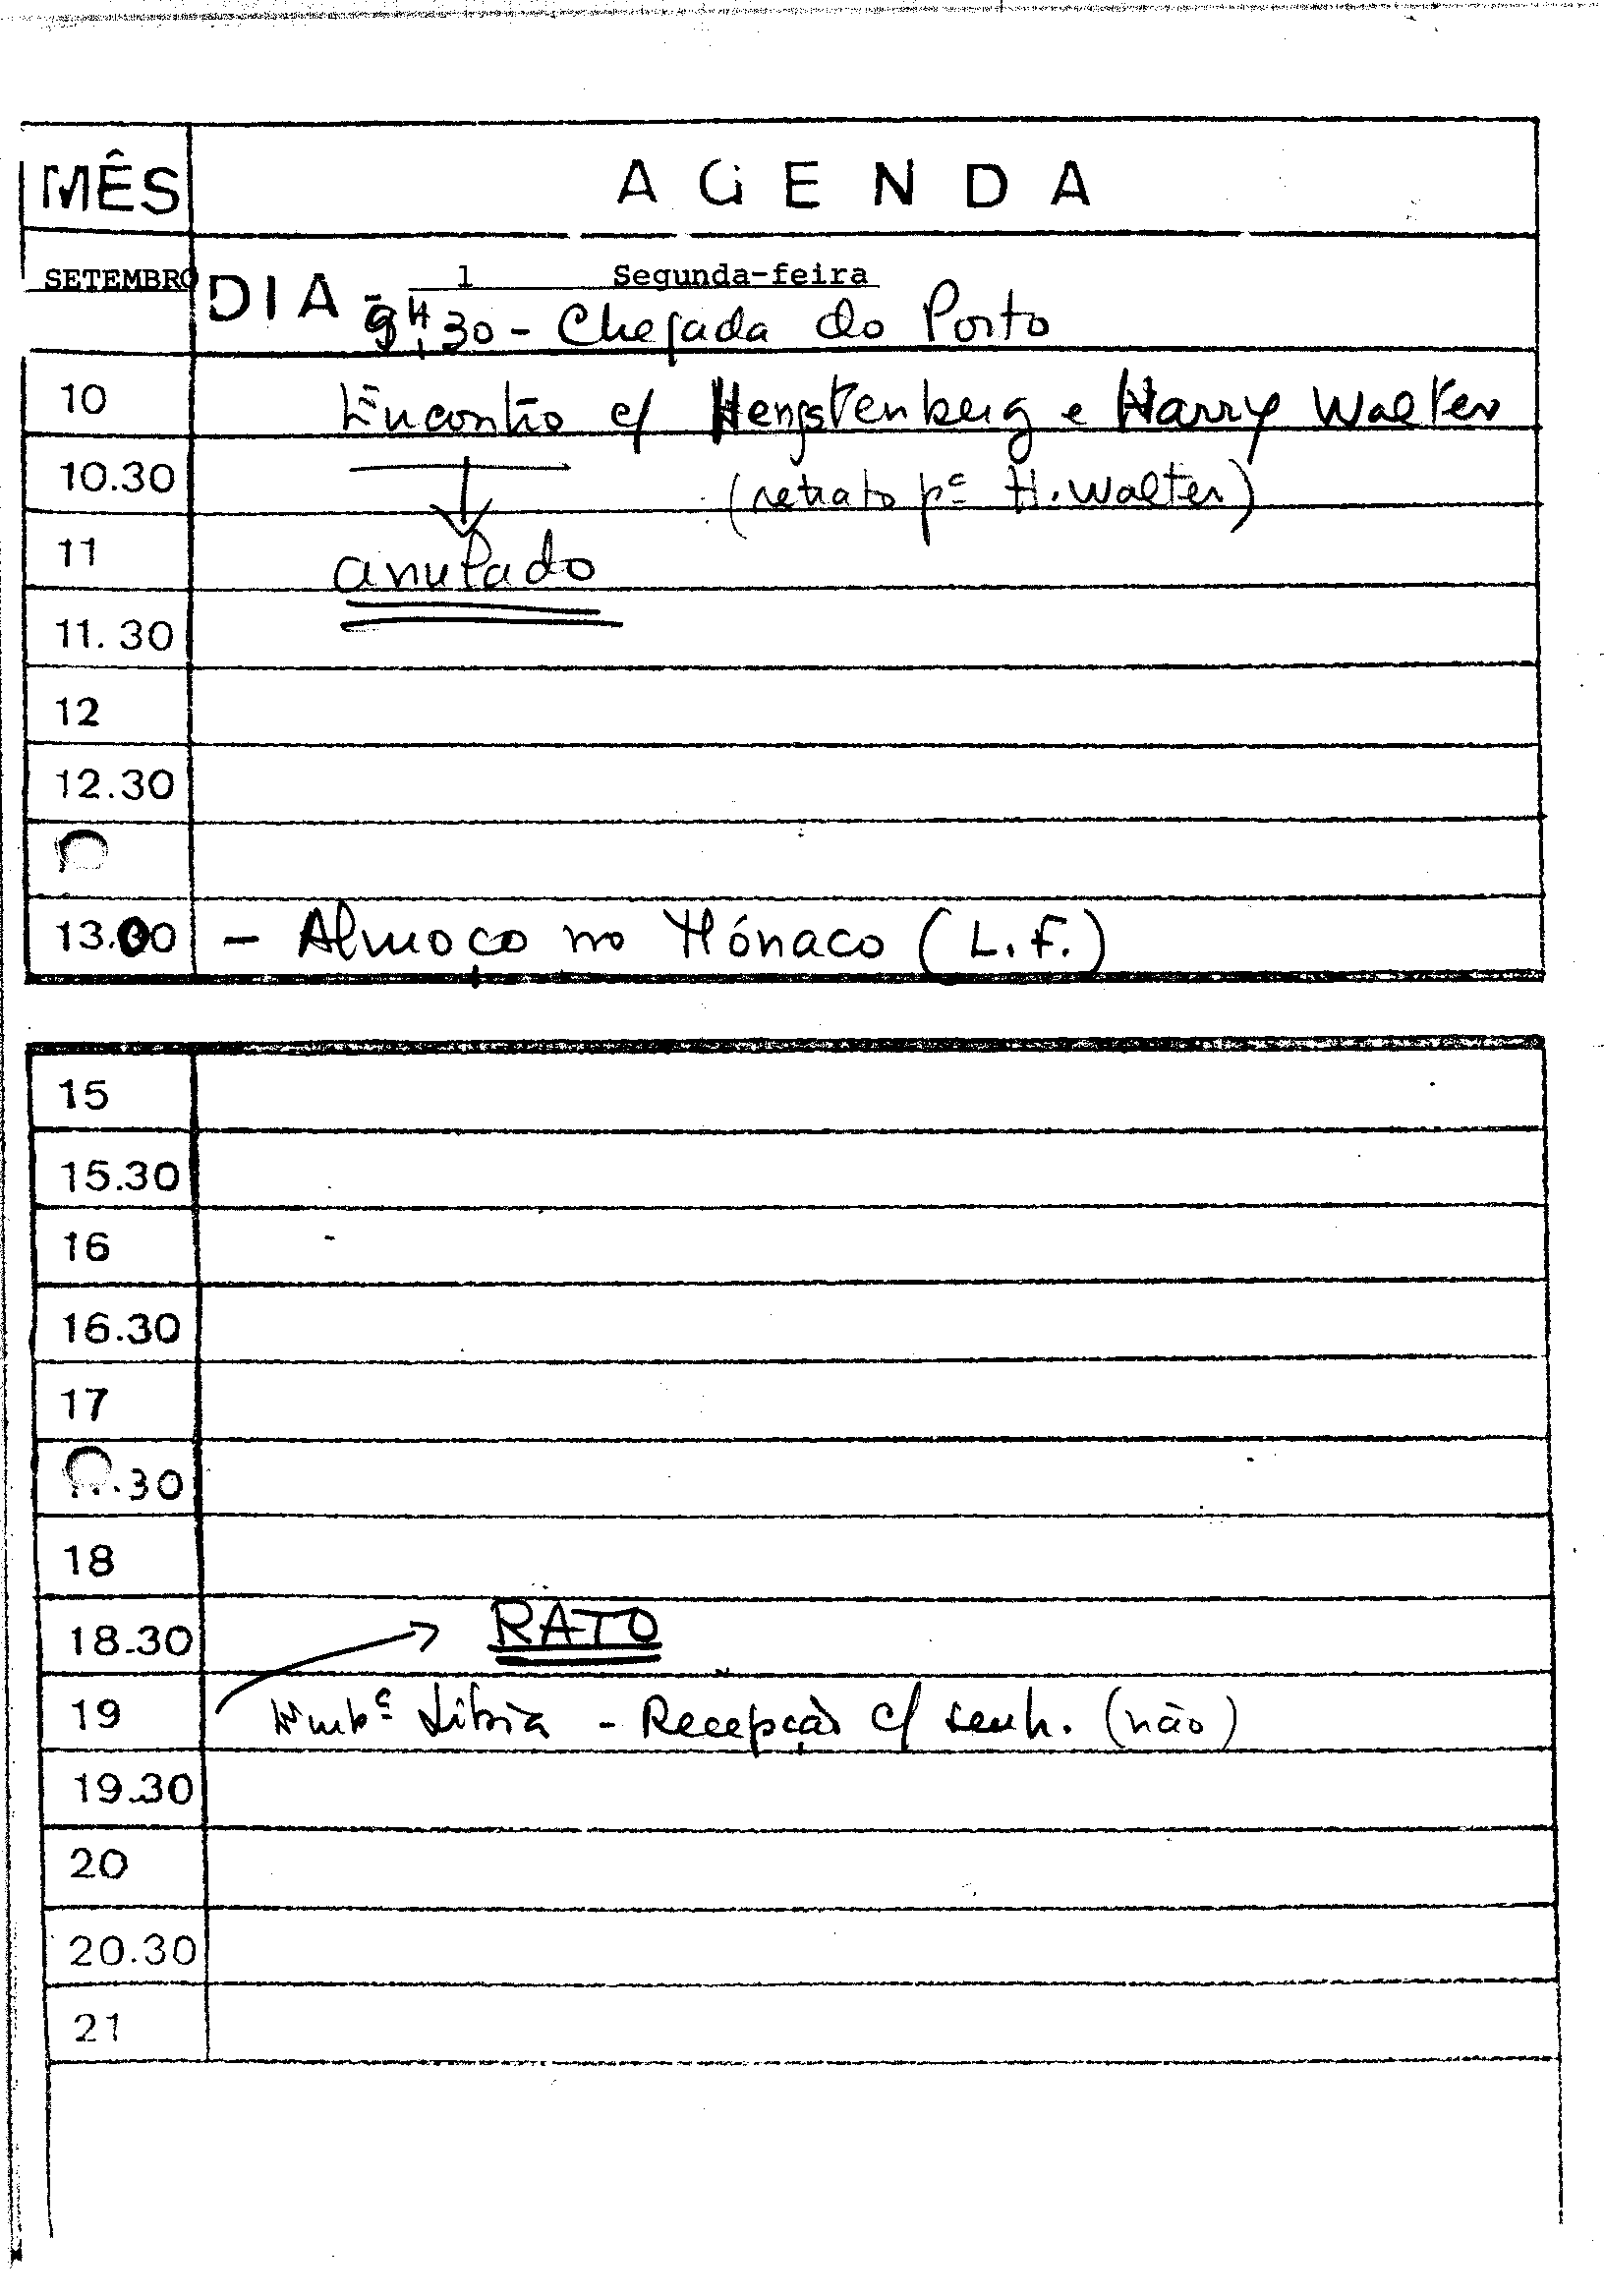 MÊS AGENDA
SETEMBRO DIA - 1 Segunda-feira
9H,30 - Chegada do Porto
10 Encontro c/ Hengstenberg e Harry Walter
10.30 (retrato pª H. Walter)
11 anulado
11.30
12
12.30
13.00 - Almoço no Mónaco (L.F.)
15
15.30
16
16.30
17
.30
18
18.30 RATO
19 Embª Líbia - Recepção c/ senh. (não)
19.30
20
20.30
21